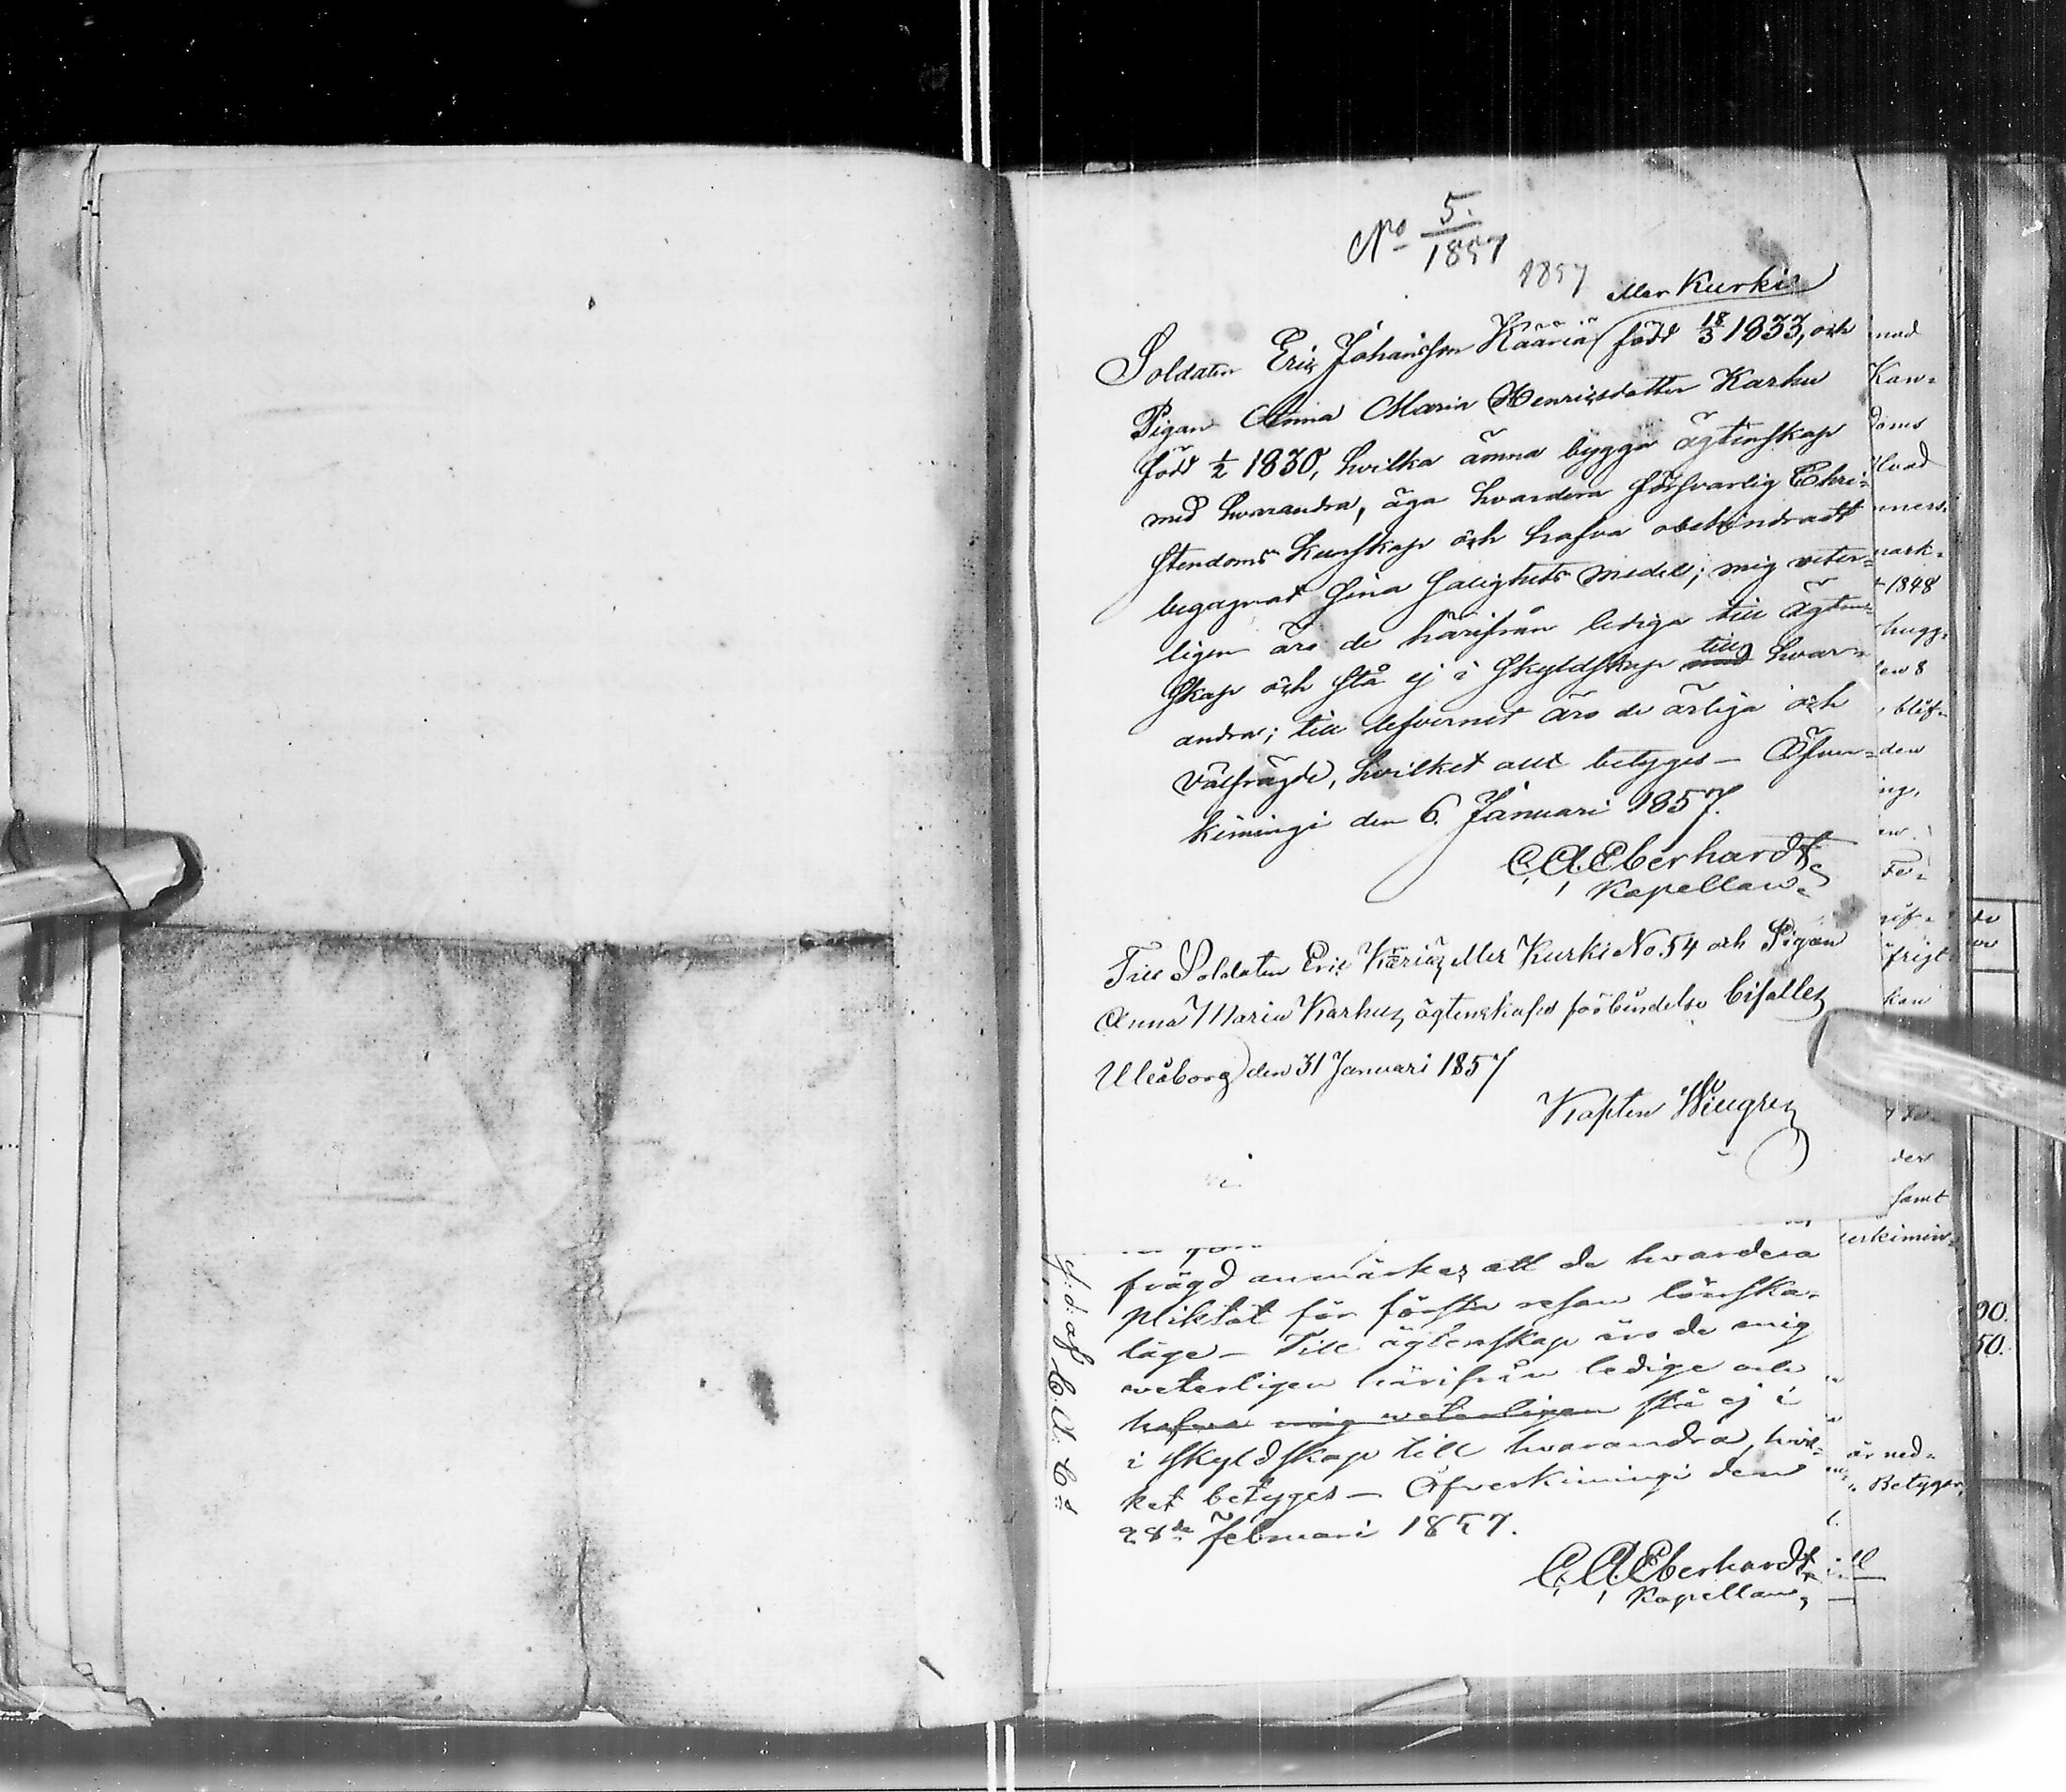 No 5./1857
1857
eller Kurki
Soldaten Eric Johansson Kääriä född 18/3 1833, och
Pigan Anna Maria Henricsdotter Karhu
född 1/2 1830, hvilka ämna bygga ägtenskap
med hvarandra, äga hvardera försvarlig Chri-
stendoms kunskap och hafva obehindradt
begagnat sina salighets medel; mig veter-
ligen äro de härifrån lediga till ägten-
skap och stå ej i skyldskap med till hvar-
andra; till lefvernet äro de ärliga och
välfrägde, hvilket allt betyges – Öfver-
kiimingi den 6. Januari 1857.
C. A. Eberhardt
Kapellan
Till Soldaten Eric Kääriä eller Kurki No. 54 och Pigan
Anna Maria Karhu ägtenskaps förbindelse bifalles
Uleåborg den 31 Januari 1857
Kapten
frägd anmärkes att de hvardera
pliktat för första resan lönska-
läge – Till ägtenskap äro de mig
veterligen härifrån lediga och
hafva mig veterligen stå ej i
i skyldskap till hvarandra, hvil-
ket betyges – Öfverkiimingi den
28de februari 1857.
C. A. Eberhardt
Kapellan
mad
Kan-
doms
1848
hugg-
den 8
blif-
den
frigt
kan
der
samt
erkimin-
är ned-
Betyger
00.
50.